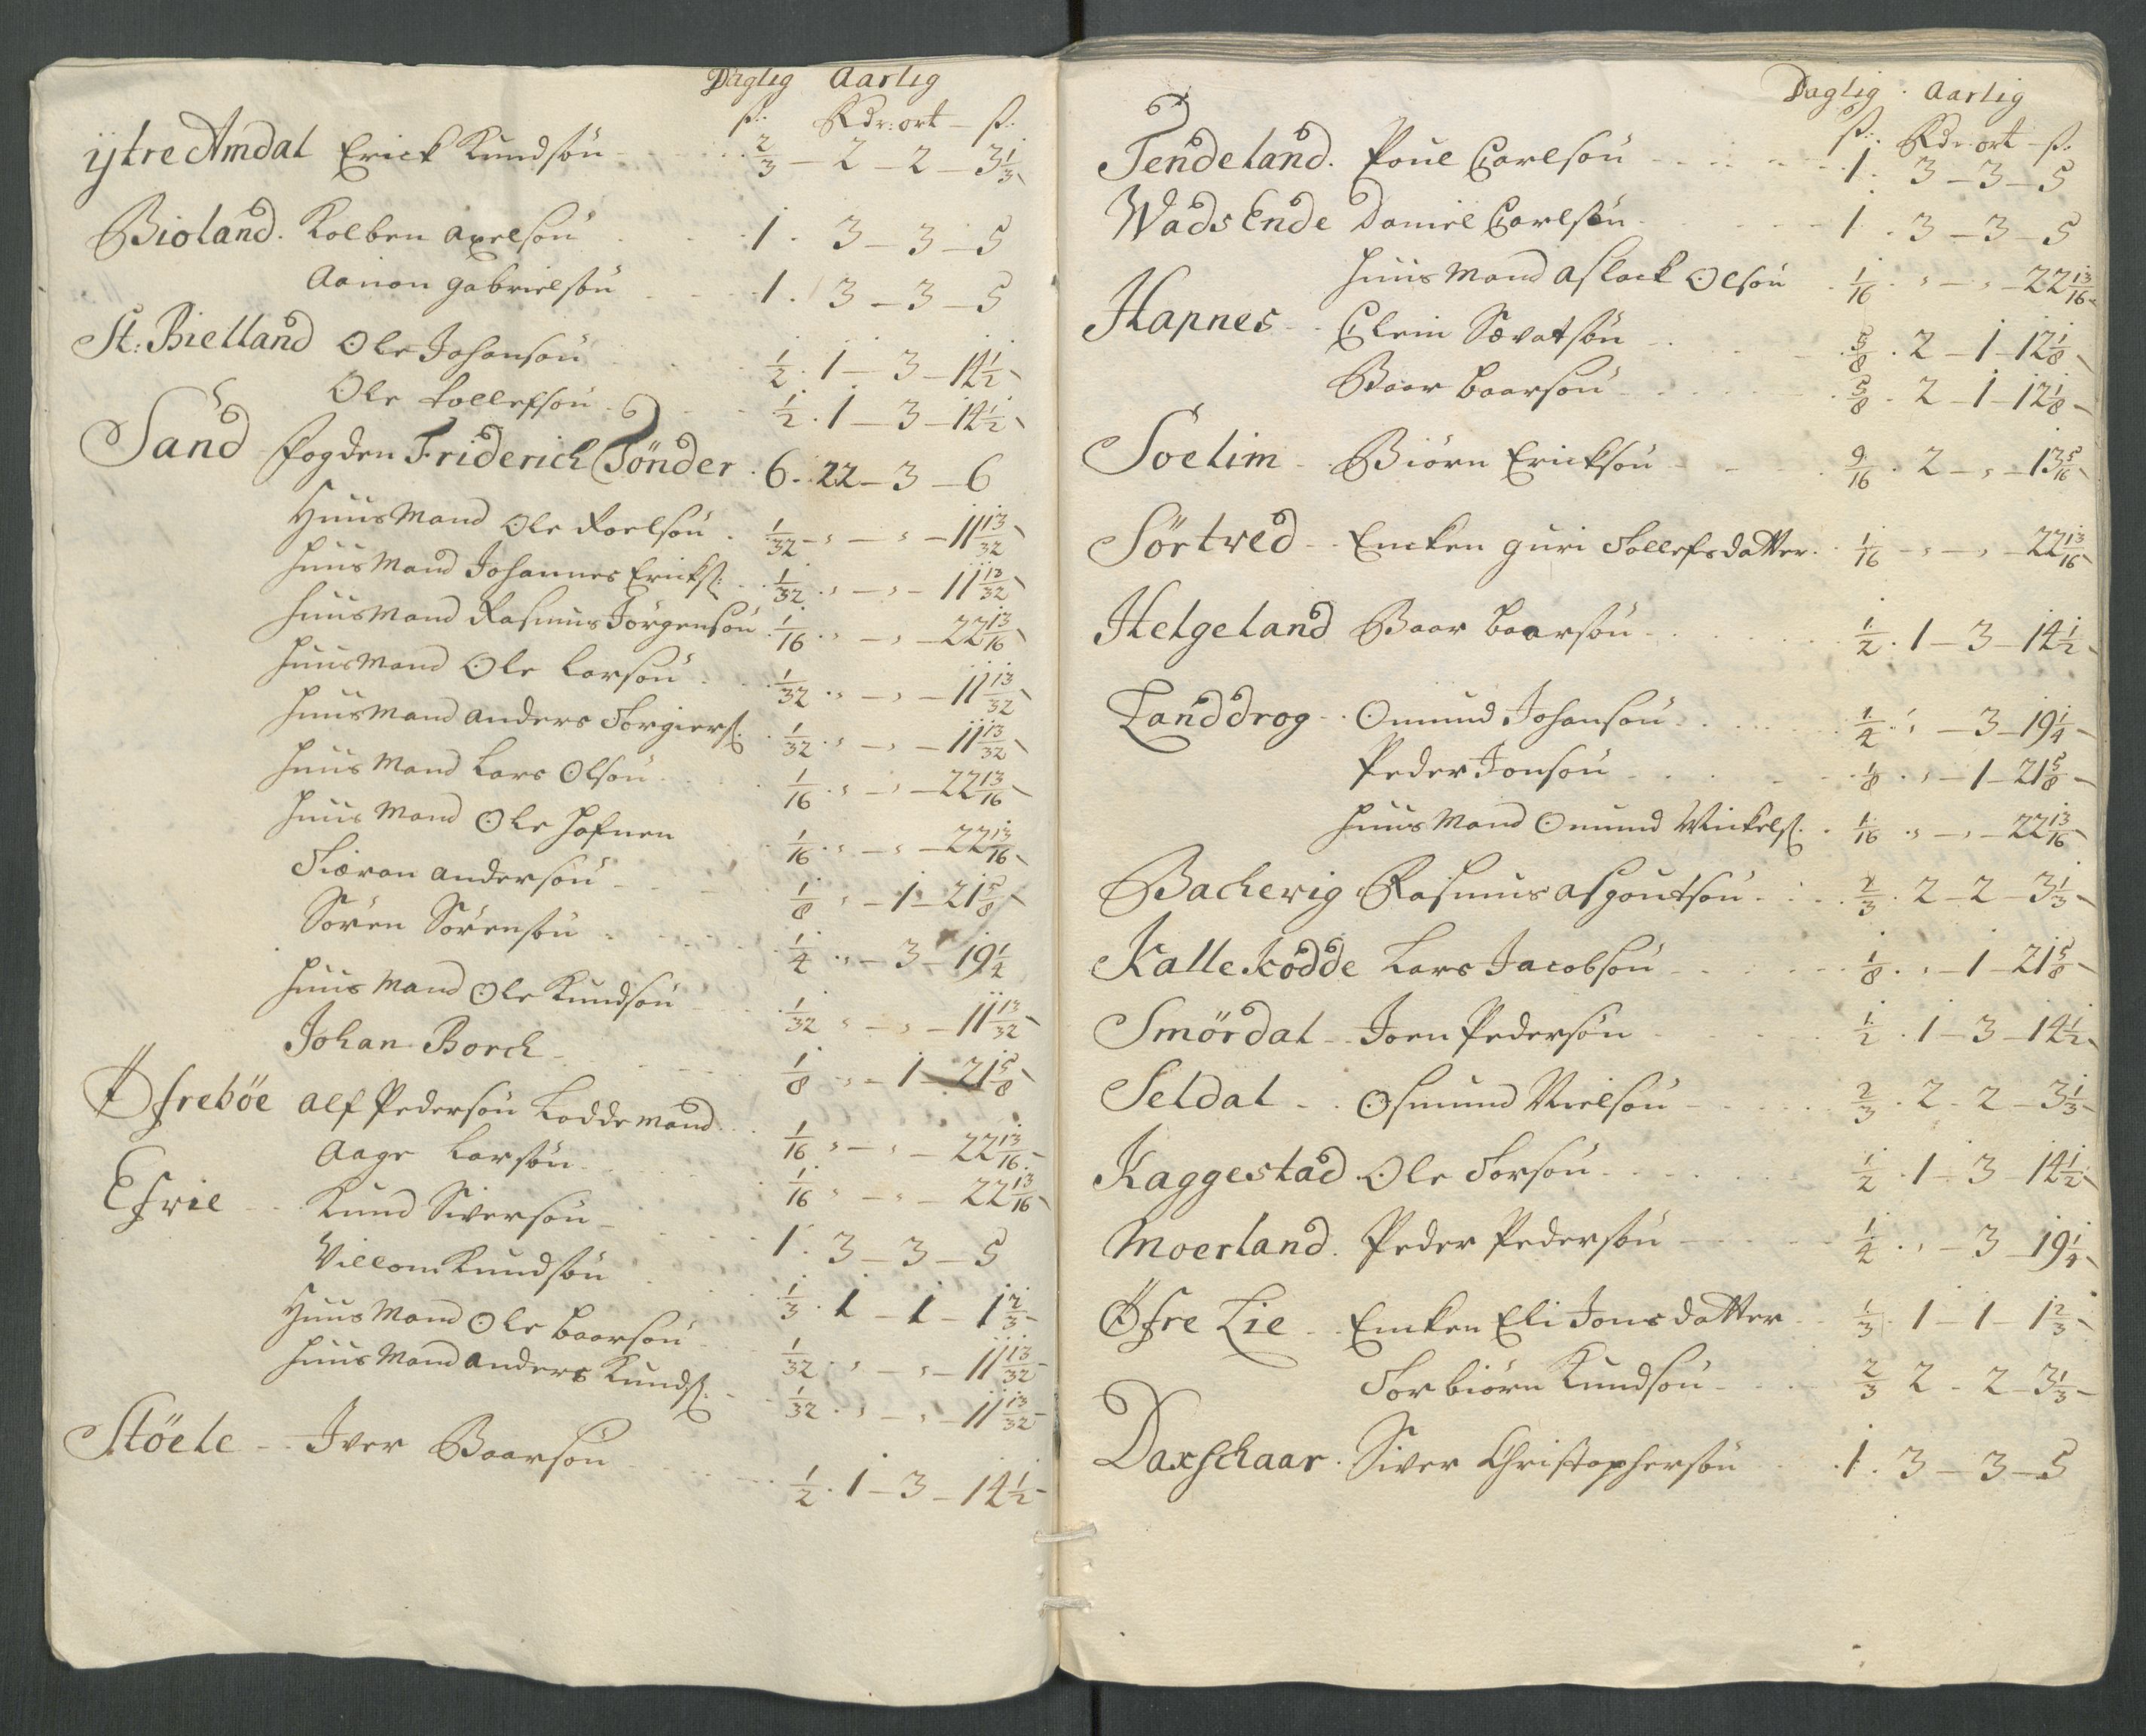 Daglig Aarlig
ß: Rdr: ort – ß:
ÿtre Amdal Erick Knudsøn 2/3 – 2 – 2 – 3 1/3
Bioland. Kolben Axelsøn 1. 3 – 3 – 5
Aanon Gabrielsøn 1. 3 – 3 – 5
St: Bielland Ole Johansøn 1/2. 1 – 3 – 14 1/2
Ole Tollefsøn 1/2. 1 – 3 – 14 1/2
Sand Fogden Friderich Tönder. 6. 22 – 3 – 6
Huus Mand Ole Roelsøn. 1/32 – „ – „ – 11 13/32
Huus Mand Johannes Ericks: 1/32 „ – „ – 11 13/32
Huus Mand Rasmus Jörgensøn 1/16. „ – „ – 22 13/16
Huus Mand Ole Larsøn 1/32. „ – „ – 11 13/32
Huus Mand Anders Torgiers: 1/32. „ – „ – 11 13/32
Huus Mand Lars Olsøn 1/16. „ – „ – 22 13/16
Huus Mand Ole Hafnen 1/16. „ – „ – 22 13/16
Siæran Andersøn 1/8 „ – 1 – 21 5/8
Sören Sörensøn 1/4 „ – 3 – 19 1/4
Huus Mand Ole Knudsøn 1/32 „ – „ – 11 13/32
Johan Borch 1/8 „ – 1 – 21 5/8
Öfreböe Alf Pedersøn Lodde mand 1/16 „ – „ – 22 13/16
Aage Larsøn 1/16 „ – „ – 22 13/16
Efrie Knud Siversøn 1. 3 – 3 – 5
Villom Knudsøn 1/3. 1 – 1 – 1 2/3
Huus Mand Ole Baarsøn 1/32. „ – „ – 11 13/32
Huus Mand Anders Knuds: 1/32. „ – „ – 11 13/32
Stöele Iver Baarsøn 1/2. 1 – 3 – 14 1/2
Daglig. Aarlig
ß: Rdr: ort – ß:
Tendeland. Poul Carlsøn 1. 3 – 3 – 5
Wads Ende Daniel Carlsøn 1. 3 – 3 – 5
Huus Mand Aslack Olsøn 1/16. „ – „ – 22 13/16
Hapnes Clein Sævatsøn 5/8. 2 – 1 – 12 1/8
Baar Baarsøn 5/8. 2 – 1 – 12 1/8
Soelim Biörn Ericksøn 9/16. 2 – „ – 13 5/16
Sörtved Encken Guri Tollefsdatter. 1/16 – „ – „ – 22 13/16
Helgeland Baar Baarsøn 1/2. 1 – 3 – 14 1/2
Landdrog Omund Johansøn 1/4. „ – 3 – 19 1/4
Peder Jonsøn 1/8. „ – 1 – 21 5/8
Huus Mand Omund Mickels: 1/16. „ – „ – 22 13/16
Bacherig Rasmus Aspoutsøn 2/3. 2 – 2 – 3 1/3
Kalleködde Lars Jacobsøn 1/8. „ – 1 – 21 5/8
Smördal Joen Pedersøn 1/2. 1 – 3 – 14 1/2
Seldal Osmund Nielsøn 2/3. 2 – 2 – 3 1/3
Kaggestad Ole Torsøn 1/2. 1 – 3 – 14 1/2
Moerland. Peder Pedersøn 1/4. „ – 3 – 19 1/4
Öfre Lie Encken Eli Jons datter 1/3. 1 – 1 – 1 2/3
Torbiörn Knudsøn 2/3 2 – 2 – 3 1/3
Daxschaar. Siver Christophersøn 1. 3 – 3 – 5